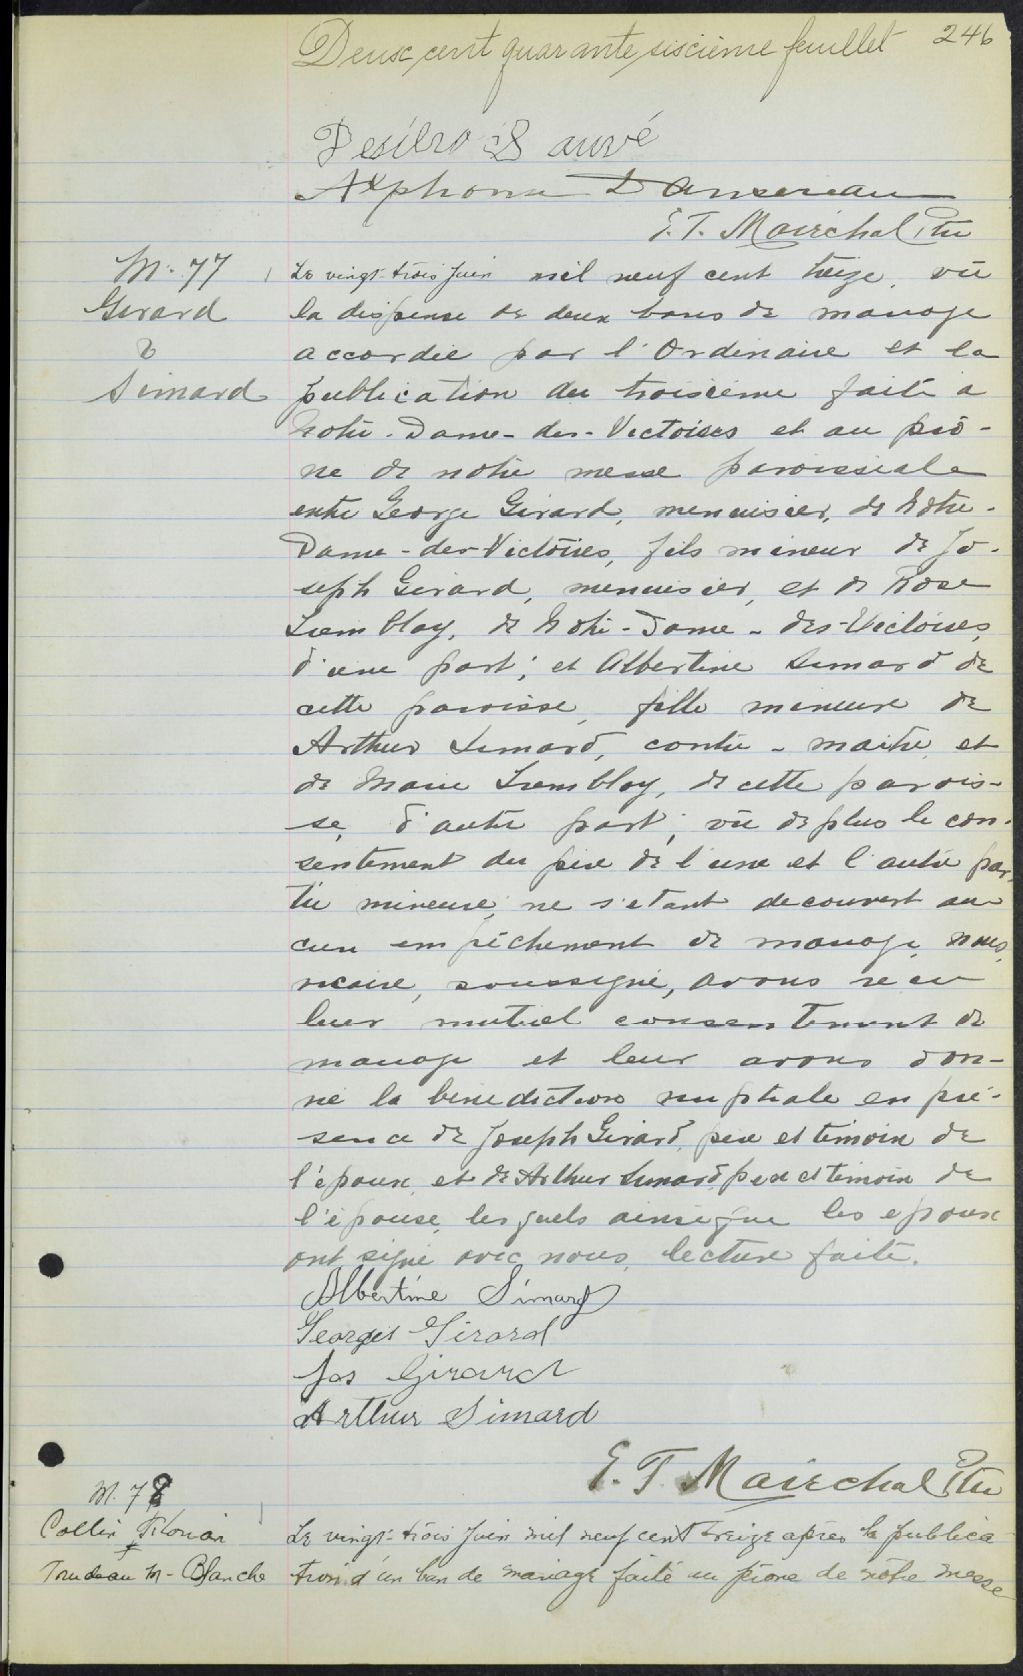 Deux cent quarante sixième feuillet 246
Sauvé
Alphonse Dansereau
E. T. Maréchal Ptre
M. 77
Girard
&
Simard
Le vingt-trois Juin mil neuf cent treize, vû
la dispense de deux bans de mariage
accordée par l'Ordinaire et la
publication du troisième faite à
Notre-Dame-des-Victoires et au prô-
ne de notre messe paroissiale
entre George Girard, menuisier, de Notre-
Dame-des-Victoires, fils mineur de Jo-
seph Girard, menuisier, et de Rose
Tremblay, de Notre-Dame-des-Victoires,
d'une part; et Albertine Simard de
cette paroisse, fille mineure de
Arthur Simard, contre-maitre, et
de Marie Tremblay, de cette parois-
se, d'autre part; vû de plus le con-
sentement du père de l'une et l'autre par-
tie mineure; ne s'etant decouvert au-
cun empêchement de mariage, nous,
vicaire, soussigné, avons reçu
leur mutuel consentement de
mariage et leur avons don-
né la bénédiction nuptiale en pré-
sence de Joseph Girard, père et témoin de
l'époux, et de Arthur Simard, père et témoin de
l'épouse, lesquels ainsi que les epoux
ont signé avec nous, lecture faite.
Albertine Simard
Georges Girard
Jos Girard
Arthur Simard
E. T. Maréchal Ptre
M. 78
Collin
&
Trudeau M-Blanche
Le vingt-trois Juin mil neuf cent treize après la publica
tion d'un ban de mariage faite au prône de nôtre messe